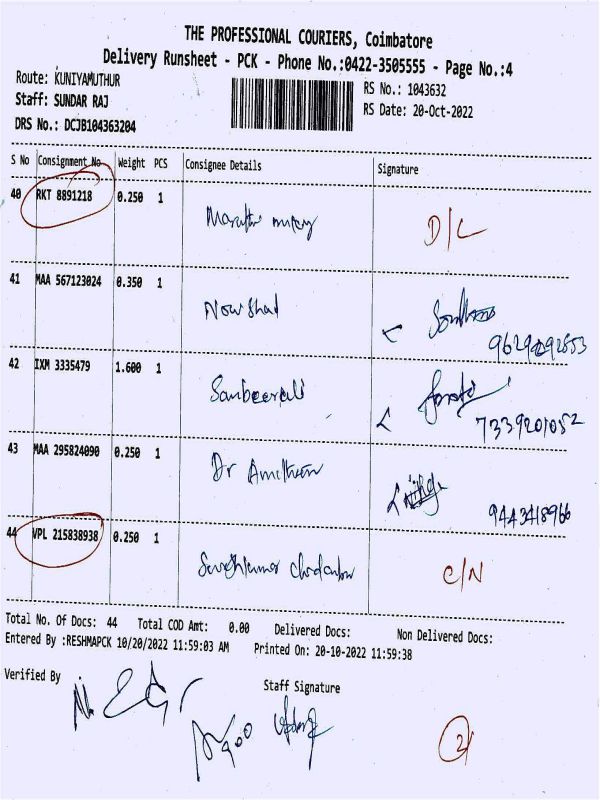 THE PROFESSIONAL COURIERS, Coimbatore
Delivery Runsheet - PCK - Phone No.:0422-3505555 - Page No.:4
Route: KUNIYAMUTHUR
Staff: SUNDAR RAJ
DRS No.: DCJB104363204
RS No.: 1043632
RS Date: 20-Oct-2022
S No Consignment No Weight PCS Consignee Details Signature
40 RKT 8891218 0.250 1 D/L
41 MAA 567123024 0.350 1 Nowshad
42 IXM 3335479 1.600 1
7339201052
43 MAA 295824090 0.250 1 Dr
9443418966
44 VPL 215838938 0.250 1 C/N
Total No. Of Docs: 44 Total COD Amt: 0.00 Delivered Docs: Non Delivered Docs:
Entered By :RESHMAPCK 10/20/2022 11:59:03 AM Printed On: 20-10-2022 11:59:38
Verified By
Staff Signature
2